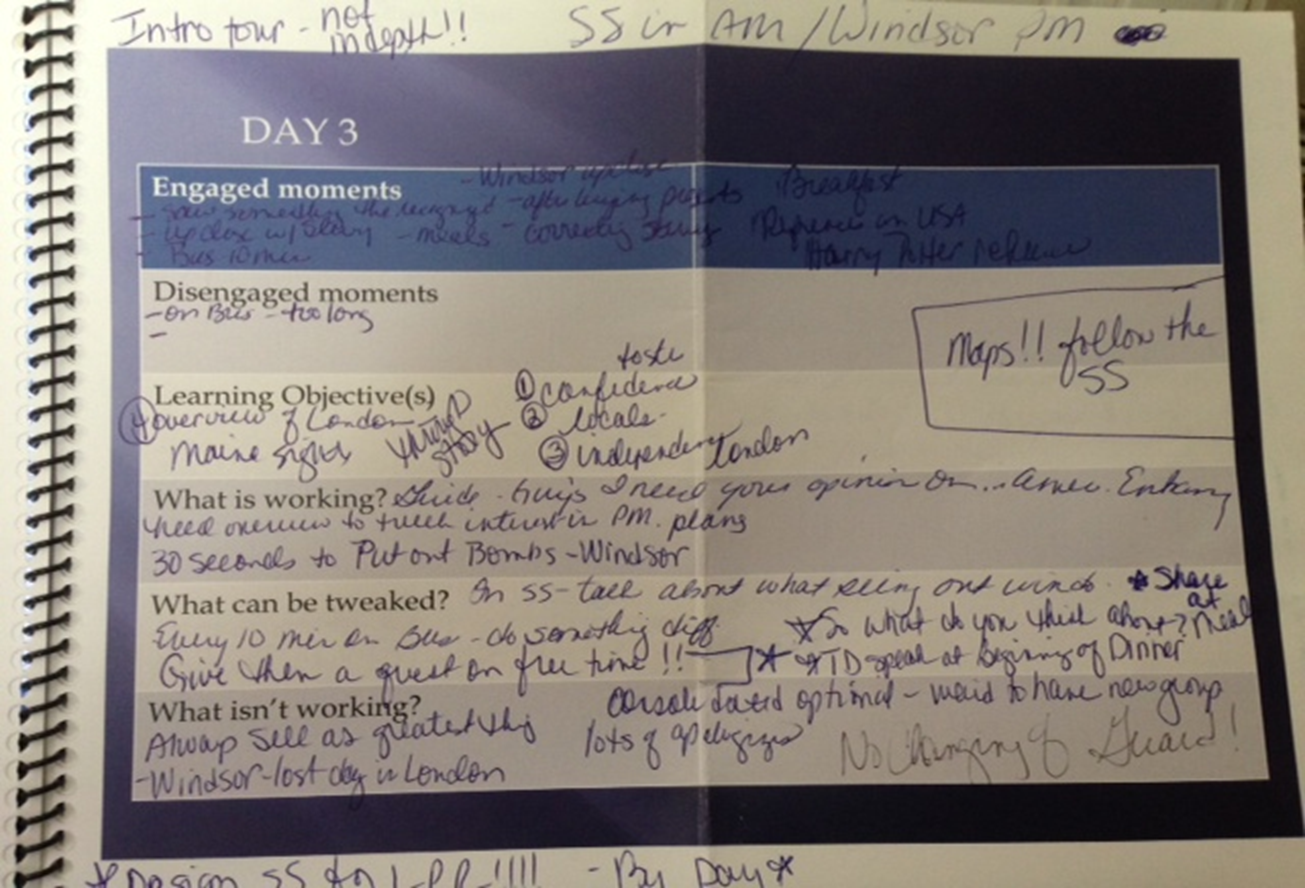 Intro tour - not indepth!!
SS in AM / Windsor PM
DAY 3
Engaged moments
- Windsor up close Breakfast
- saw something they recognized - after buying presents Reference in USA
- up close w/ story - meals - correcting story
- Bus 10 min Harry Potter reference
Disengaged moments
- on Bus - too long
-
Maps!! follow the
SS
Learning Objective(s)
taste
① confidence
④ overview of London ② locale
Maine sights story ③ independency London
What is working? Guide - Guys I need your opinion on... Amer. Embassy
need overview to interest in PM. plans
30 seconds to Put out Bombs - Windsor
What can be tweaked? On SS - talk about what seeing out wind. * Share at Meal
Every 10 min on Bus - do something diff * So what do you think about?
Give them a quest on free time!! * * TD speak at Beginning of Dinner
What isn't working? Consolidated optional - weird to have new group
Always sell as greatest thing lots of apologizes
No Changing of Guard!
- Windsor - lost day in London
* Design SS - By Day *